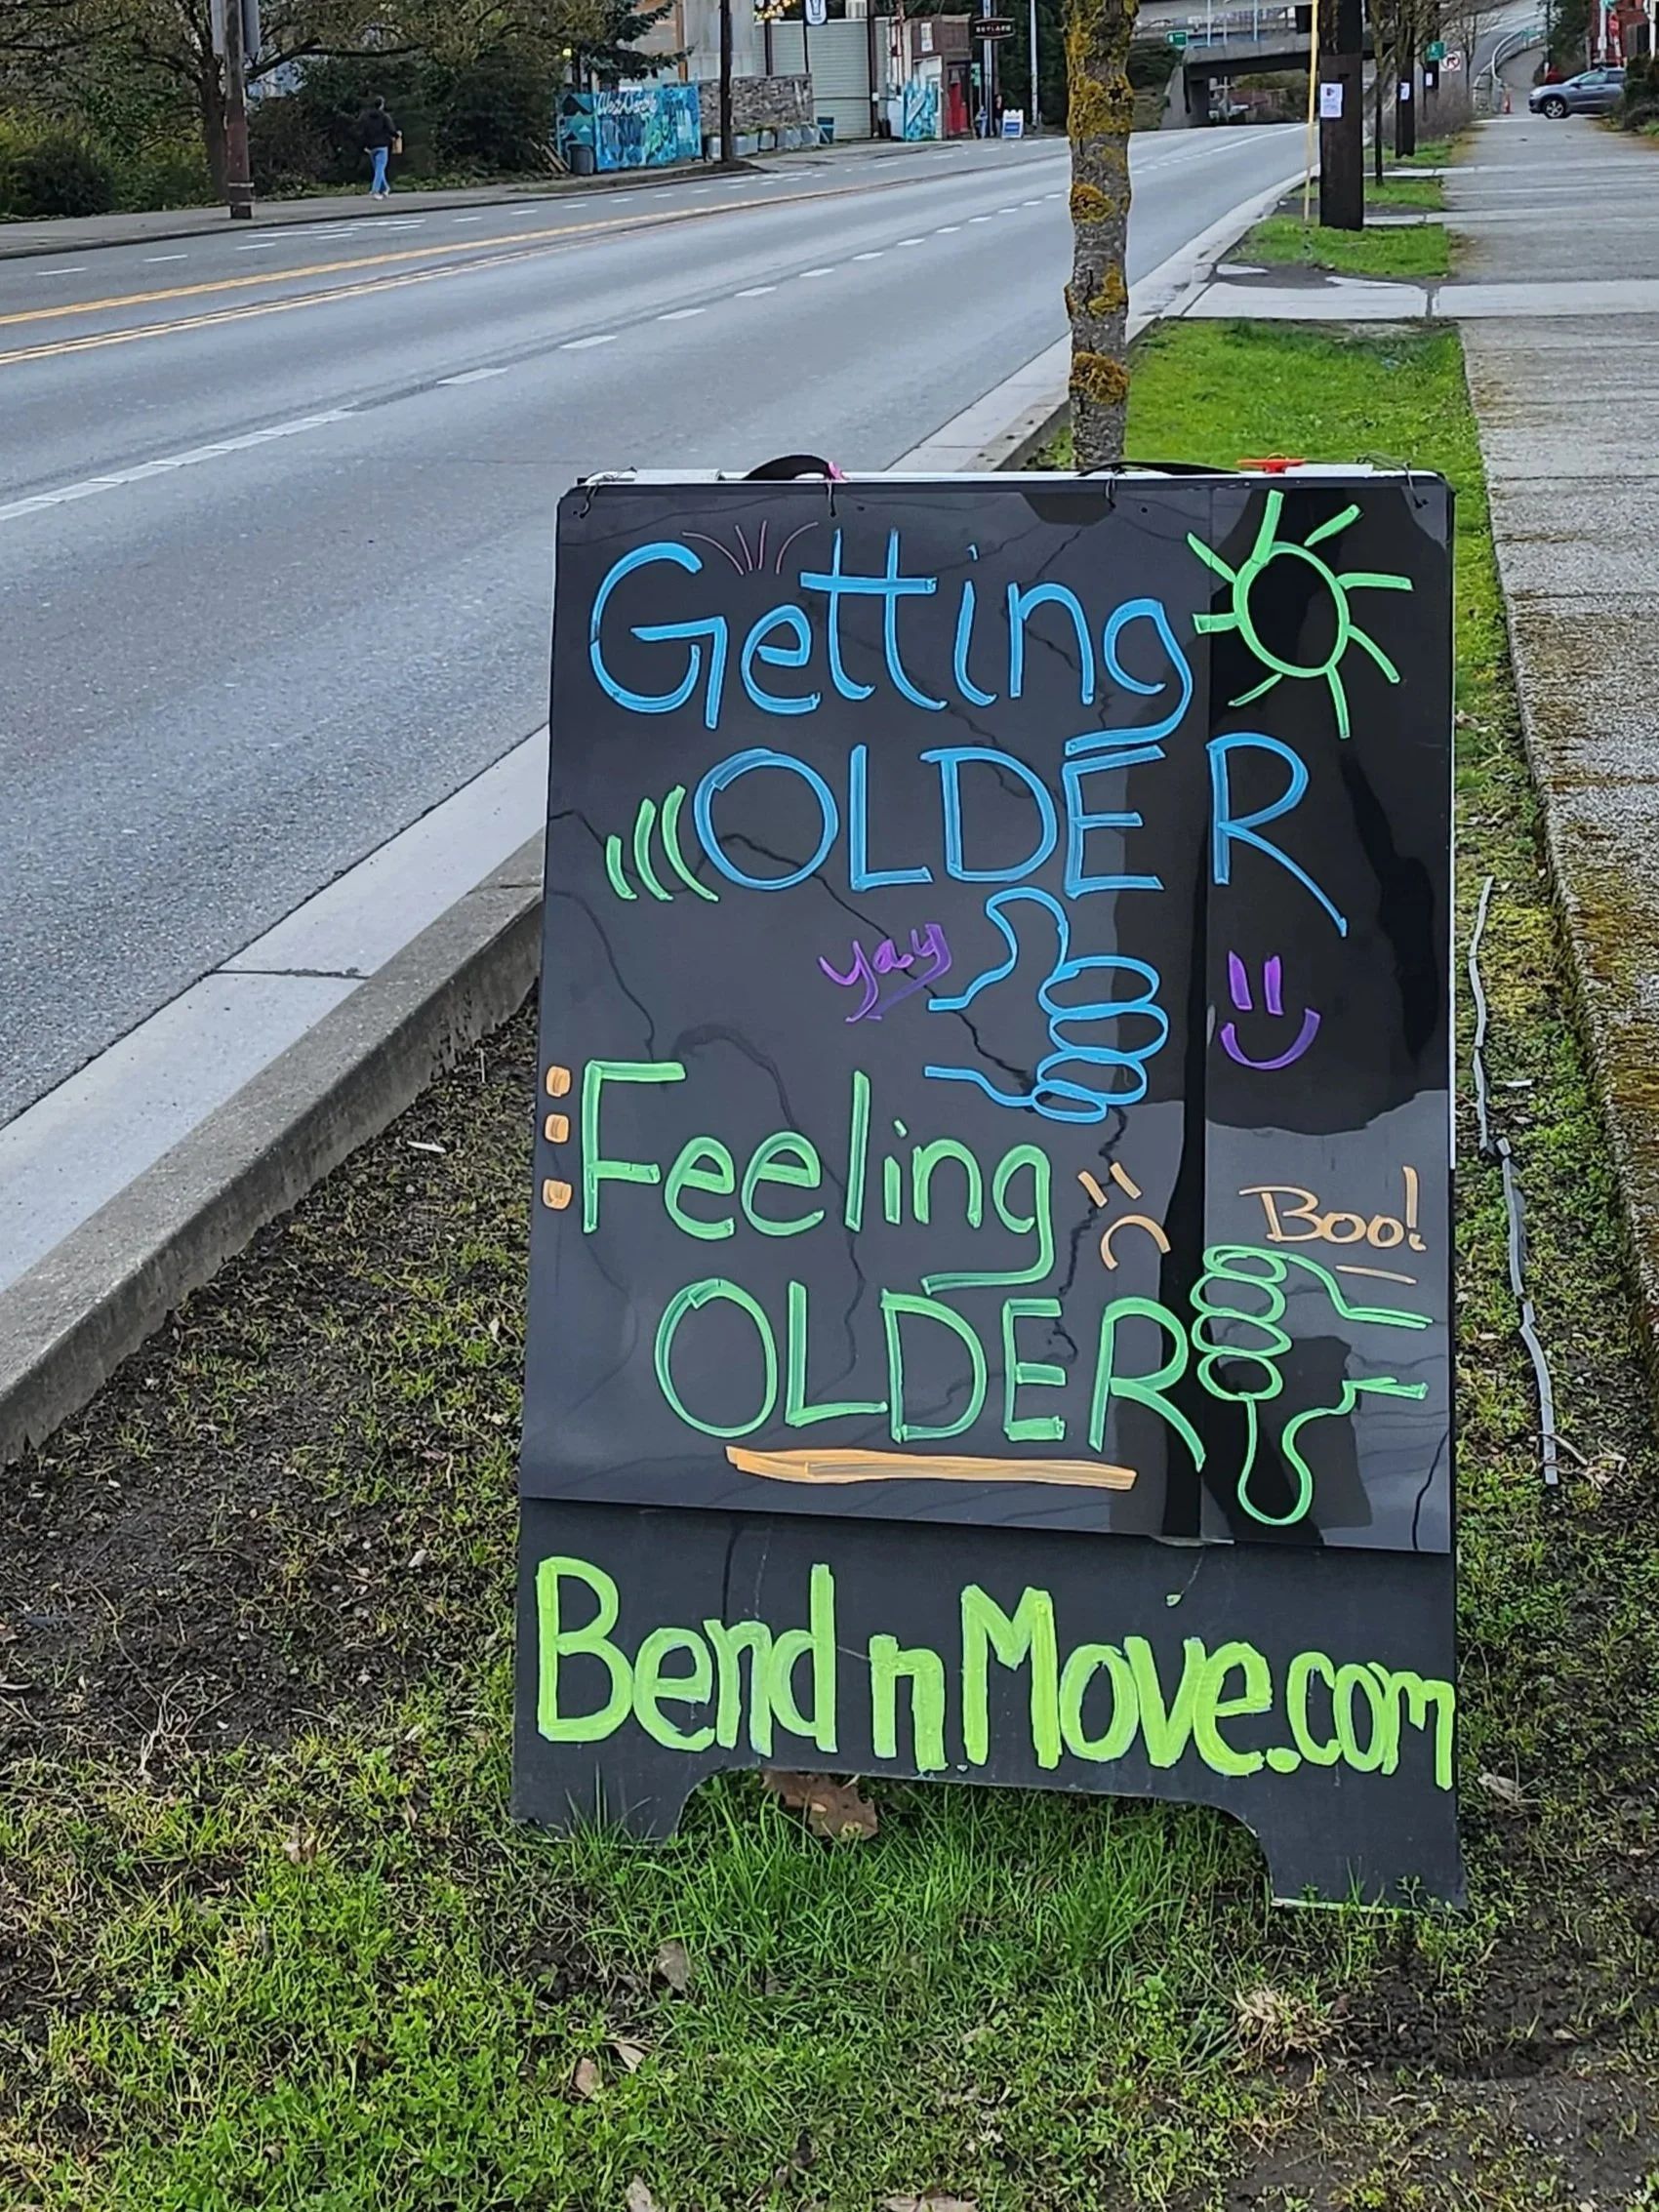 Getting
OLDER
yay
Feeling
Boo!
OLDER
BendnMove.com